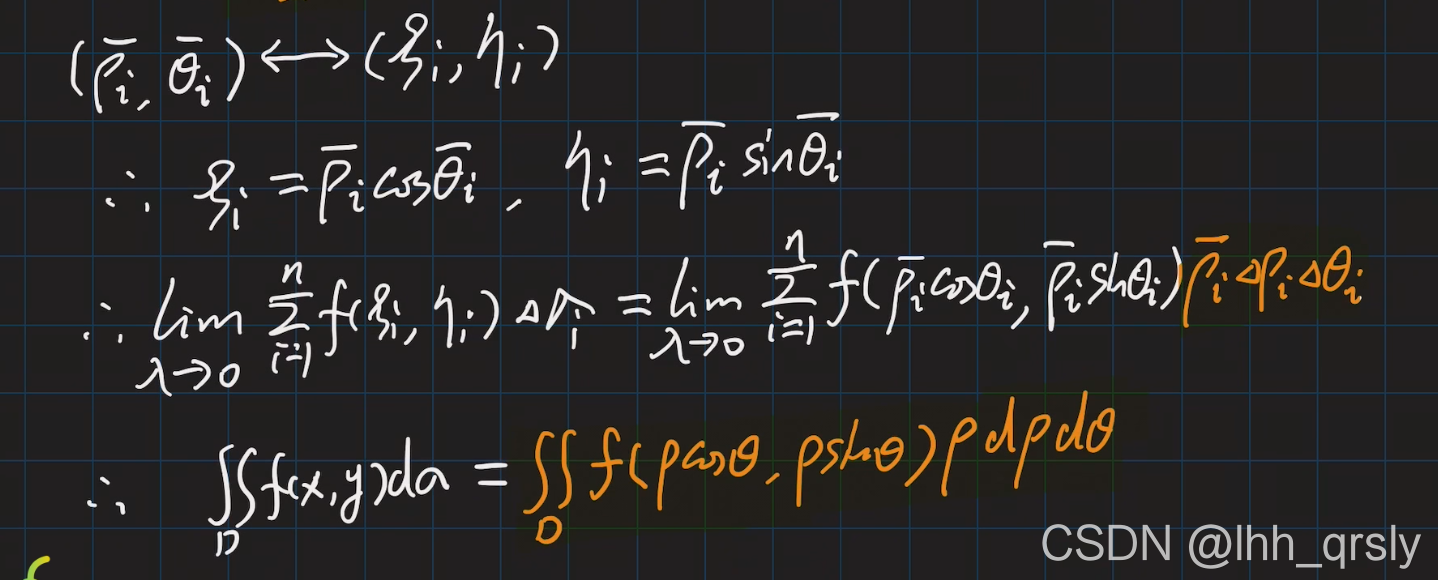 (ρ̄ᵢ, θ̄ᵢ) ⟷ (ξᵢ, ηᵢ)
∴ ξᵢ = ρ̄ᵢ cosθ̄ᵢ, ηᵢ = ρ̄ᵢ sinθ̄ᵢ
∴ lim_{λ→0} ∑_{i=1}^{n} f(ξᵢ, ηᵢ) Δσᵢ = lim_{λ→0} ∑_{i=1}^{n} f(ρ̄ᵢcosθᵢ, ρ̄ᵢsinθᵢ) ρ̄ᵢ Δρᵢ Δθᵢ
∴ ∬_D f(x,y)dσ = ∬_D f(ρcosθ, ρsinθ) ρ dρ dθ
CSDN @lhh_qrsly